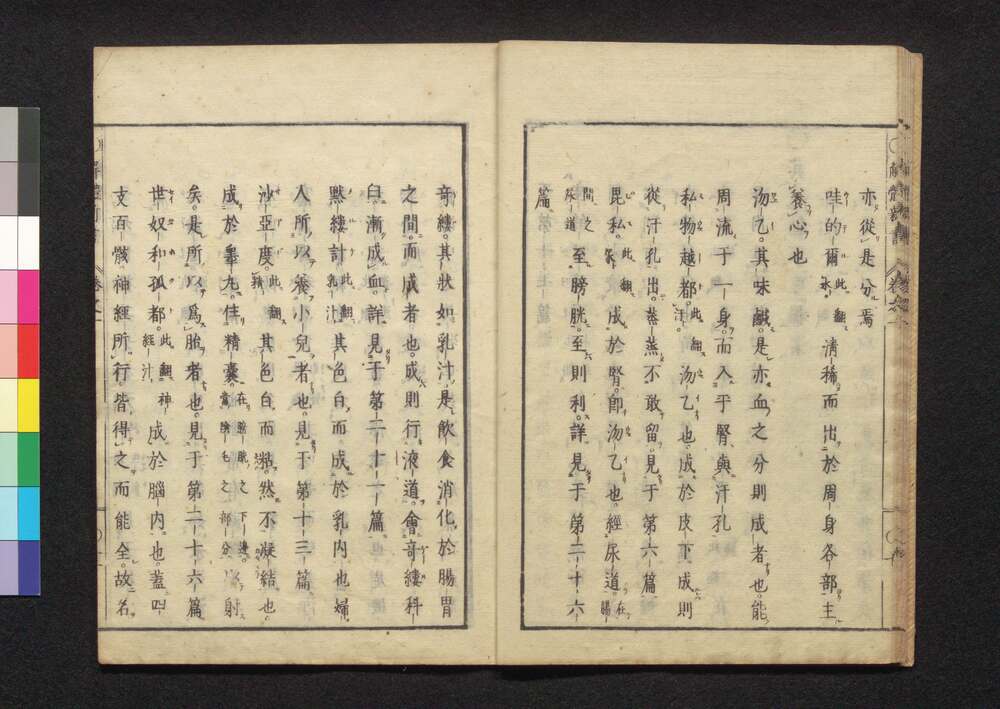 亦從是分焉
哇的爾此翻水清稀而出於周身各部主
養心也
沕乙其味鹹是亦血之分則成者也能
周流于一身而入乎腎與汗孔
私物越都此翻汗沕乙也成於皮下成則
從汗孔出蒸蒸不敢留見于第六篇
毘私此翻尿成於腎即沕乙也經尿道在腸
間之尿道至膀胱至則利詳見于第二十六
篇
奇縷其狀如乳汁是飲食消化於腸胃
之間而成者也成則行液道會奇縷科
臼漸成血詳見于第二十一篇
黙縷計此翻乳汁其色白而成於乳內也婦
人所以養小兒者也見于第十三篇
沙亞度此翻精其色白而粘然不凝結也
成於睾丸住精囊在膀胱之下邊當陰毛之部分射
矣是所以爲胎者也見于第二十六篇
世奴和孤都此翻神經汁成於腦內也蓋四
支百骸神經所行皆得之而能全故名